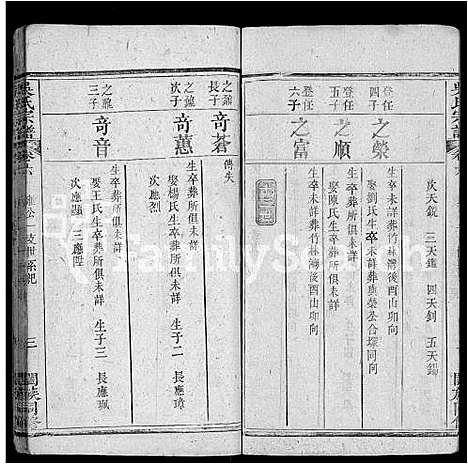 吳氏宗譜
次天銳　三天鑑　四天釗　五天錫
登任四子
之榮
生卒未詳葬竹林灣後酉山卯向
娶劉氏生卒未詳葬與榮公合塚同向
登任五子
之順
生卒葬所俱未詳
娶陳氏生卒葬所俱未詳
登任六子
之富
生卒未詳葬竹林灣後酉山卯向
之鼐長子
奇蒼
傳失
之鼐次子
奇蕙
生卒葬所俱未詳
娶楊氏生卒葬所俱未詳　生子二　長應璋
次應烈
之鼐三子
奇音
生卒葬所俱未詳
娶王氏生卒葬所俱未詳　生子三　長應珮
次應顯　三應陞
吳氏宗譜
卷六
三
闔族同修
FamilySearch